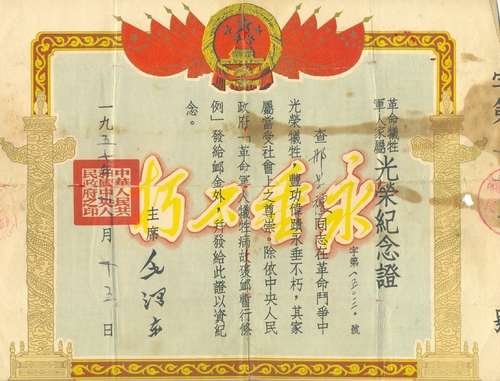 革命犧牲
軍人家屬
光榮紀念證
字第 號
查 同志在革命鬥爭中
光榮犧牲,豐功偉蹟永垂不朽,其家
屬當受社會上之尊崇。除依中央人民
政府「革命軍人犧牲病故褒卹暫行條
例」發給卹金外,并發給此證以資紀
念。
主席 毛澤東
一九五 年 月十五日
永垂不朽
中華人民共
和國中央人
民政府之印
字第
號